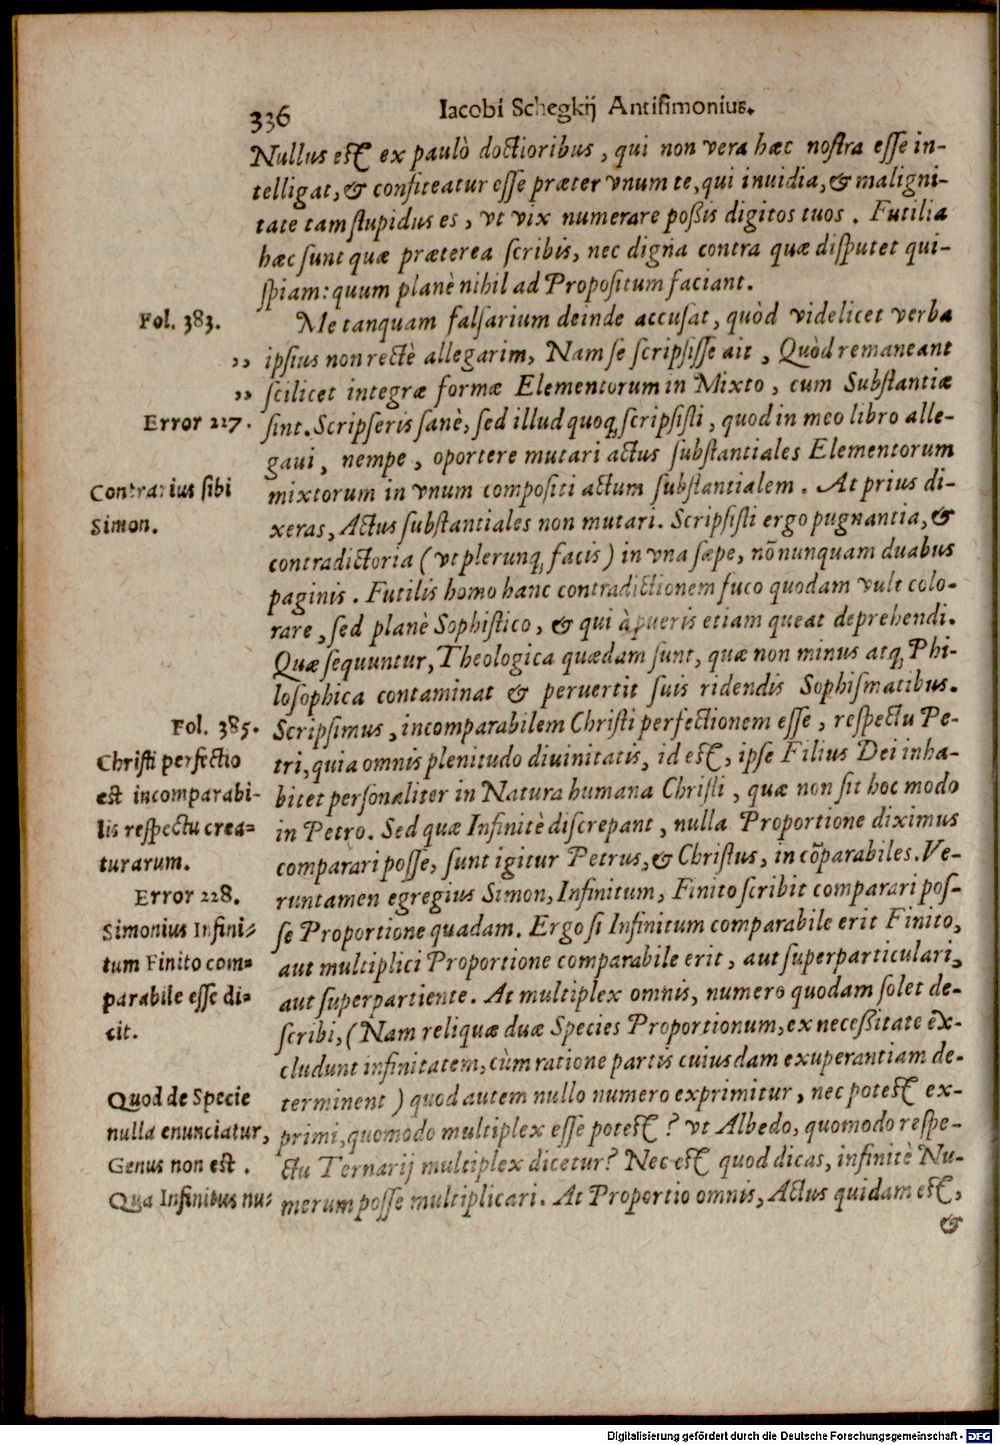 336
Iacobi Schegkij Antisimonius.
Nullus est ex paulò doctioribus, qui non vera hæc nostra esse in-
telligat, & confiteatur esse præter vnum te, qui inuidia, & maligni-
tate tam stupidus es, vt vix numerare poßis digitos tuos. Futilia
hæc sunt quæ præterea scribis, nec digna contra quæ disputet qui-
spiam: quum planè nihil ad Propositum faciant.
Fol. 383.
Me tanquam falsarium deinde accusat, quòd videlicet verba
,, ipsius non rectè allegarim, Nam se scripsisse ait, Quòd remaneant
,, scilicet integræ formæ Elementorum in Mixto, cum Substantiæ
Error 227.
sint. Scripseris sanè, sed illud quoq; scripsisti, quod in meo libro alle-
gaui, nempe, oportere mutari actus substantiales Elementorum
Contrarius sibi
mixtorum in vnum compositi actum substantialem. At prius di-
Simon.
xeras, Actus substantiales non mutari. Scripsisti ergo pugnantia, &
contradictoria (vt plerunq; facis) in vna sæpe, nõnunquam duabus
paginis. Futilis homo hanc contradictionem fuco quodam vult colo-
rare, sed planè Sophistico, & qui à pueris etiam queat deprehendi.
Quæ sequuntur, Theologica quædam sunt, quæ non minus atq; Phi-
losophica contaminat & peruertit suis ridendis Sophismatibus.
Fol. 385.
Scripsimus, incomparabilem Christi perfectionem esse, respectu Pe-
Christi perfectio
tri, quia omnis plenitudo diuinitatis, id est, ipse Filius Dei inha-
est incomparabi-
bitet personaliter in Natura humana Christi, quæ non sit hoc modo
lis respectu crea=
in Petro. Sed quæ Infinitè discrepant, nulla Proportione diximus
turarum.
comparari posse, sunt igitur Petrus, & Christus, incõparabiles. Ve-
Error 228.
runtamen egregius Simon, Infinitum, Finito scribit comparari pos-
Simonius Infini=
se Proportione quadam. Ergo si Infinitum comparabile erit Finito,
tum Finito com=
aut multiplici Proportione comparabile erit, aut superparticulari,
parabile esse di=
aut superpartiente. At multiplex omnis, numero quodam solet de-
cit.
scribi, (Nam reliquæ duæ Species Proportionum, ex necessitate ex-
cludunt infinitatem, cùm ratione partis cuiusdam exuperantiam de-
Quod de Specie
terminent) quod autem nullo numero exprimitur, nec potest ex-
nulla enunciatur,
primi, quomodo multiplex esse potest? vt Albedo, quomodo respe-
Genus non est.
ctu Ternarij multiplex dicetur? Nec est quod dicas, infinitè Nu-
Qua Infinitus nu=
merum posse multiplicari. At Proportio omnis, Actus quidam est,
&
Digitalisierung gefördert durch die Deutsche Forschungsgemeinschaft - DFG